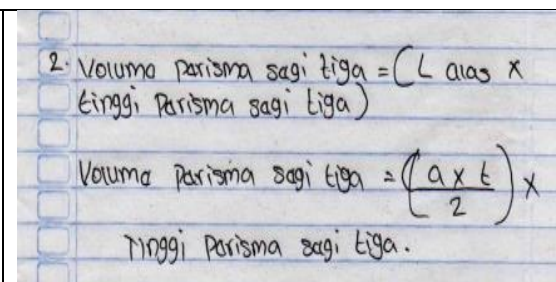 2. Voluma parisma sagi tiga = (L alas x
tinggi parisma sagi tiga)
Voluma parisma sagi tiga = (a x t / 2) x
Tinggi parisma sagi tiga.